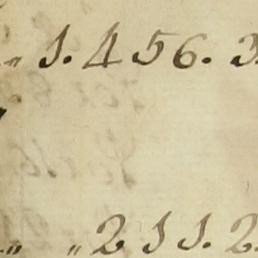 „ 1.456.
„ „ 211.2.